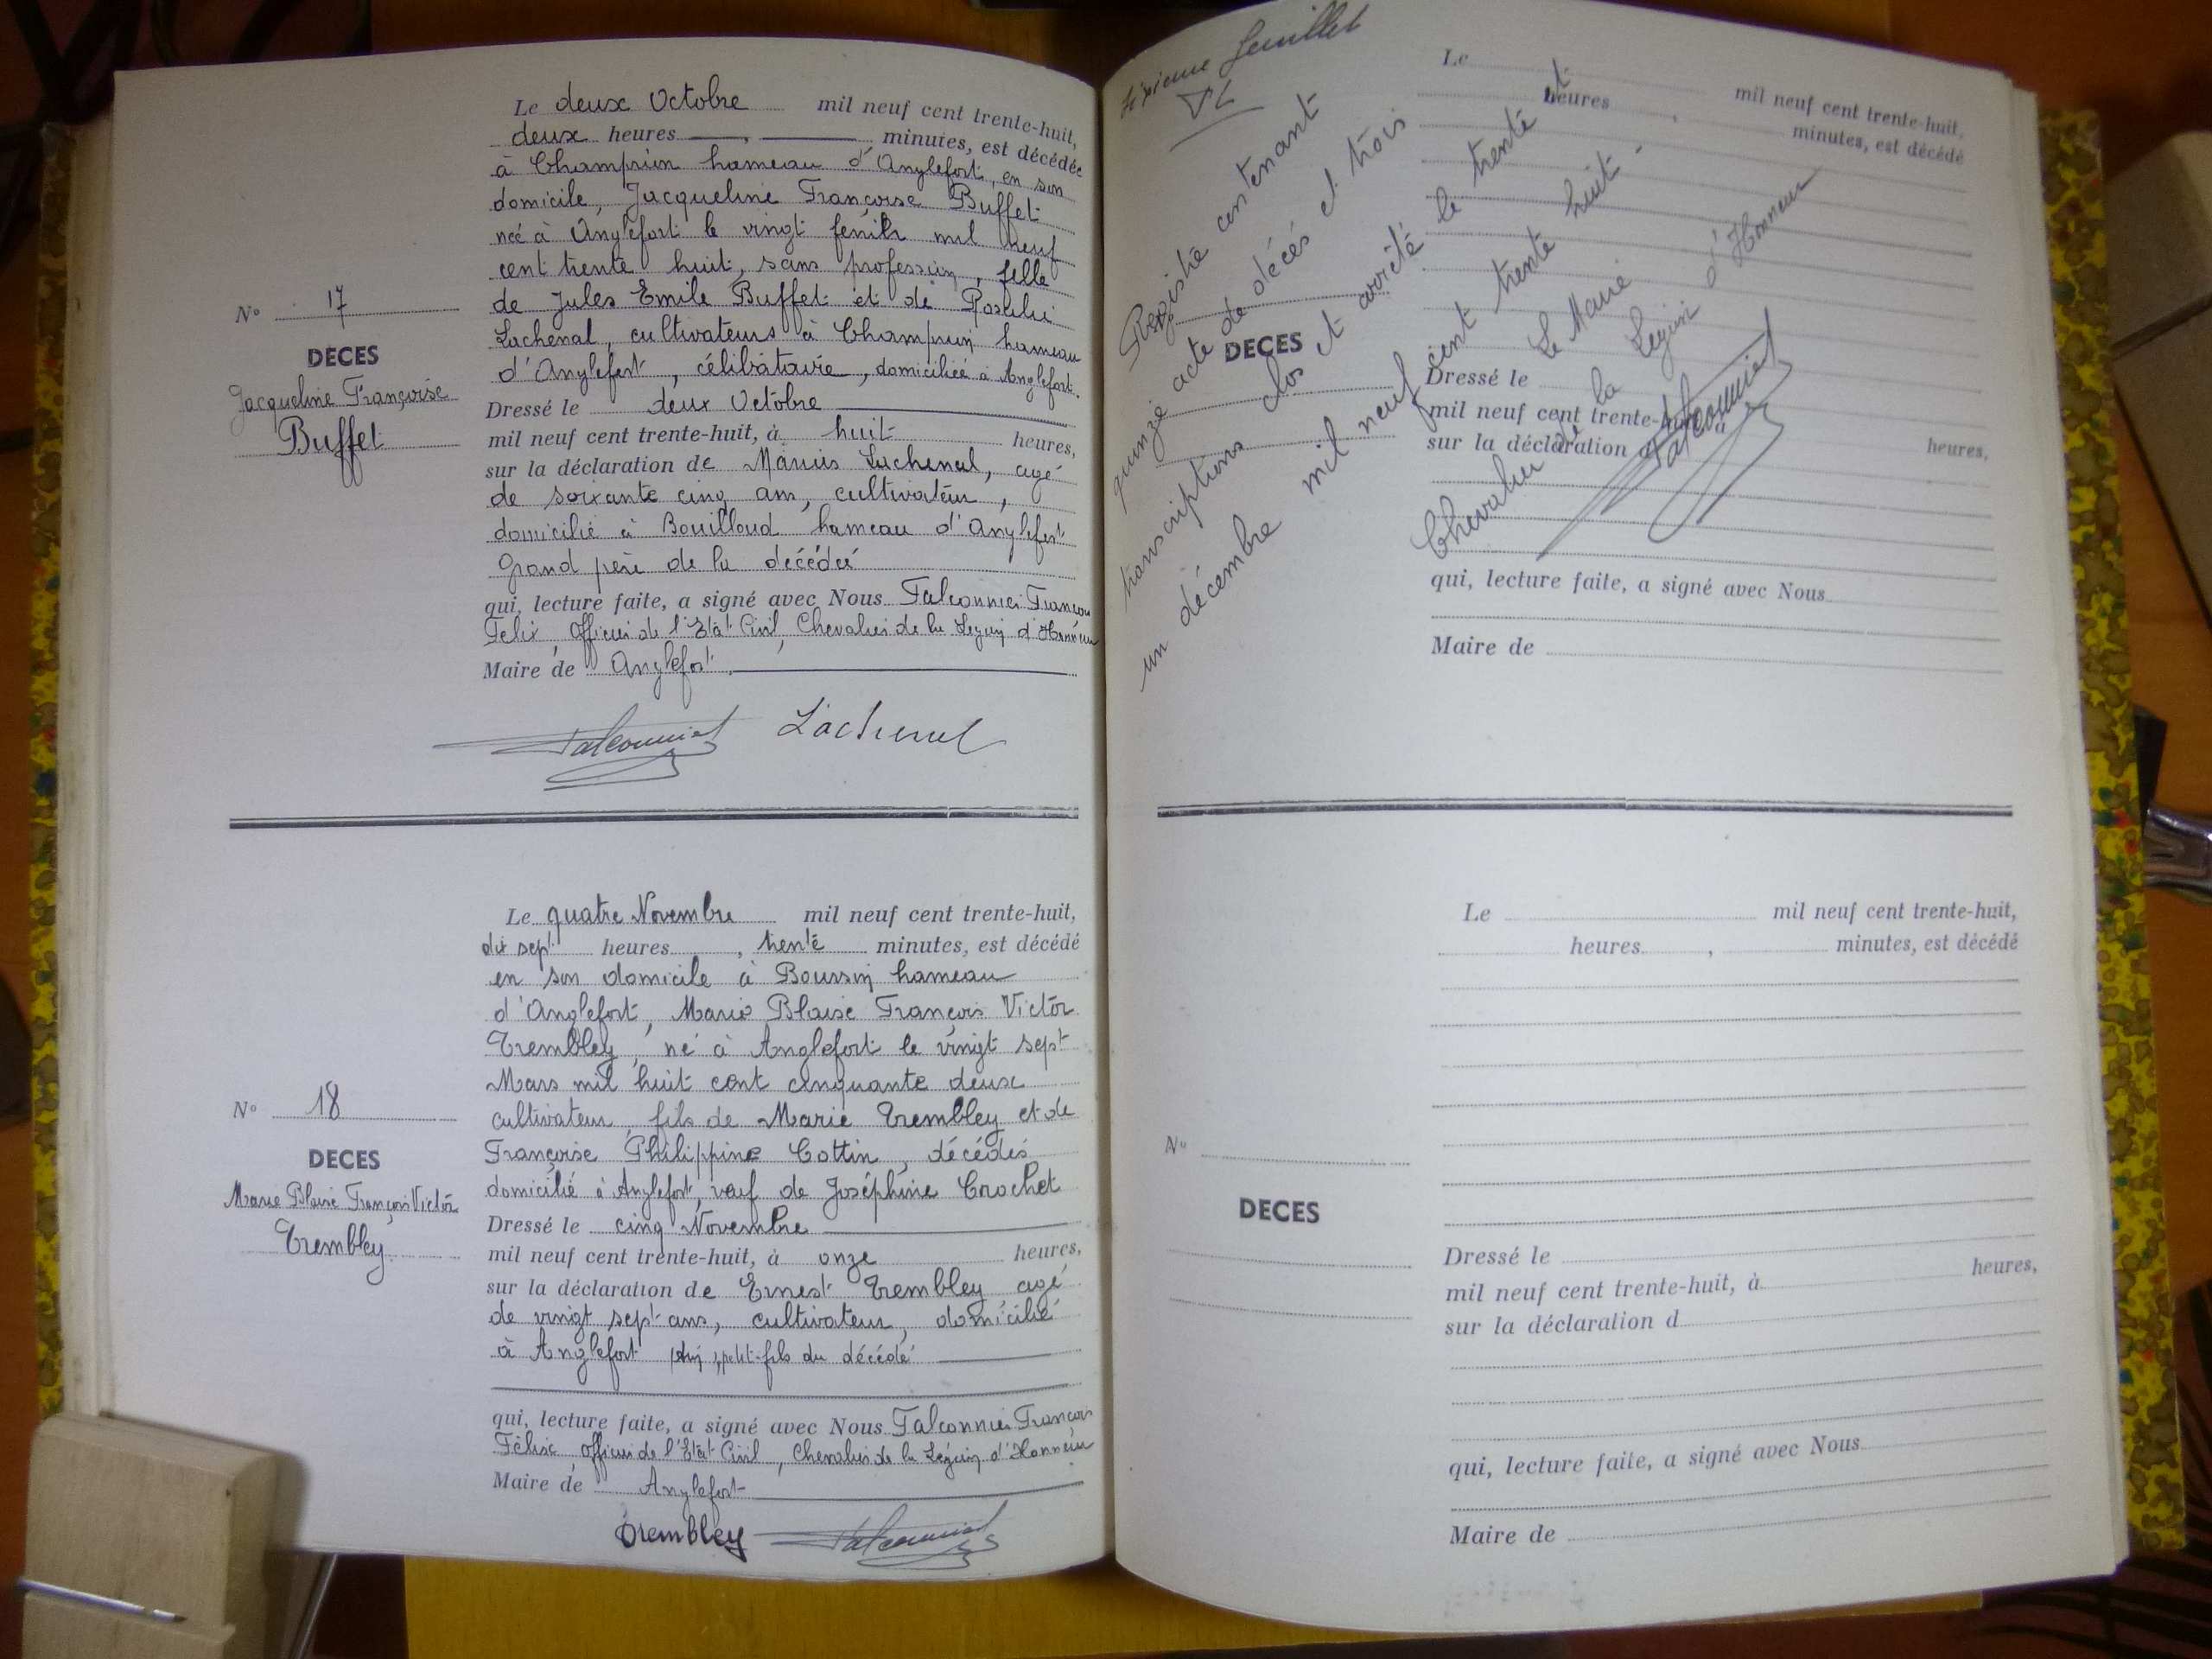 Le deux Octobre mil neuf cent trente-huit,
deux heures , minutes, est décédée
à Champriin hameau d'Anglefort, en son
domicile, Jacqueline Françoise Buffet
née à Anglefort le vingt février mil neuf
cent trente huit, sans profession, fille
de Jules Emile Buffet et de Rosalie
Lachenal, cultivateurs à Champriin hameau
d'Anglefort, célibataire, domiciliée à Anglefort.
N° 17
DECES
Jacqueline Françoise
Buffet
Dressé le deux Octobre
mil neuf cent trente-huit, à huit heures,
sur la déclaration de Marius Lachenal, agé
de soixante cinq ans, cultivateur,
domicilié à Bouilloud hameau d'Anglefort
Grand père de la décédée
qui, lecture faite, a signé avec Nous Falconnier François
Félix, Officier de l'Etat Civil, Chevalier de la Légion d'Honneur
Maire de Anglefort
Falconnier Lachenal
Le quatre Novembre mil neuf cent trente-huit,
dix sept heures , trente minutes, est décédé
en son domicile à Boursin hameau
d'Anglefort, Marie Blaise François Victor
Trembley, né à Anglefort le vingt sept
Mars mil huit cent cinquante deux
cultivateur, fils de Marie Trembley et de
Françoise Philippine Cottin, décédés
domicilié à Anglefort, veuf de Joséphine Crochet
N° 18
DECES
Marie Blaise François Victor
Trembley
Dressé le cinq Novembre
mil neuf cent trente-huit, à onze heures,
sur la déclaration de Ernest Trembley, agé
de vingt sept ans, cultivateur, domicilié
à Anglefort petit-fils du décédé
qui, lecture faite, a signé avec Nous Falconnier François
Félix, Officier de l'Etat Civil, Chevalier de la Légion d'Honneur
Maire de Anglefort
Trembley Falconnier
feuillet
Registre contenant
quinze acte de décès et trois
transcriptions clos et arrêté le trente et
un décembre mil neuf cent trente huit.
Le Maire
Chevalier de la Légion d'Honneur
Falconnier
Le mil neuf cent trente-huit,
heures , minutes, est décédé
DECES
Dressé le
mil neuf cent trente-huit, à heures,
sur la déclaration d
qui, lecture faite, a signé avec Nous
Maire de
Le mil neuf cent trente-huit,
heures , minutes, est décédé
N°
DECES
Dressé le
mil neuf cent trente-huit, à heures,
sur la déclaration d
qui, lecture faite, a signé avec Nous
Maire de